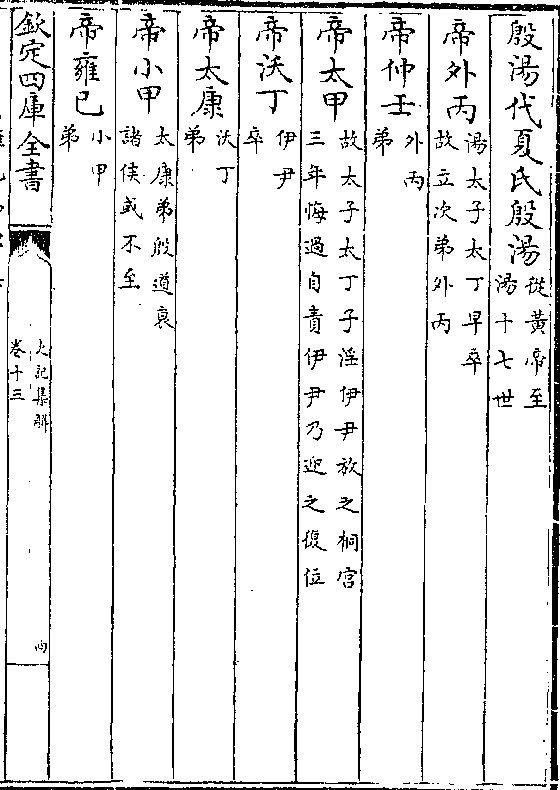 殷湯代夏氏殷湯從黃帝至
湯十七世
帝外丙湯太子太丁早卒
故立次弟外丙
帝仲壬外丙
弟
帝太甲故太子太丁子淫伊尹放之桐宮
三年悔過自責伊尹乃迎之復位
帝沃丁伊尹
卒
帝太康沃丁
弟
帝小甲太康弟殷道衰
諸侯或不至
帝雍已小甲
弟
欽定四庫全書
史記集解
卷十三